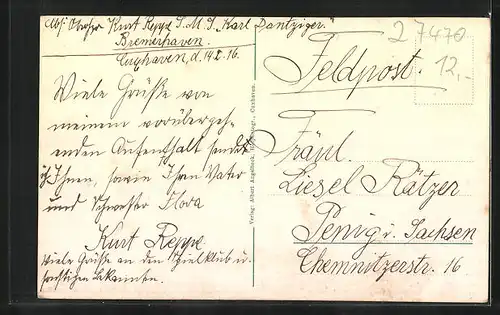 Abs. Kurt Reppe S.M.S. „Karl Dantziger"
Bremerhaven.
Cuxhaven, d. 14.2.16.
Viele Grüße von
meinem vorübergeh-
enden Aufenthalt sendet
Ihnen, sowie Ihrem Vater
und Schwester Flora
Kurt Reppe
Viele Grüße an den Spielklub u.
sonstigen Bekannten.
Verlag: Albert Cuxhaven.
27470
12,-
Feldpost.
Fräul.
Liesel Rätzer
Penig i. Sachsen
Chemnitzerstr. 16